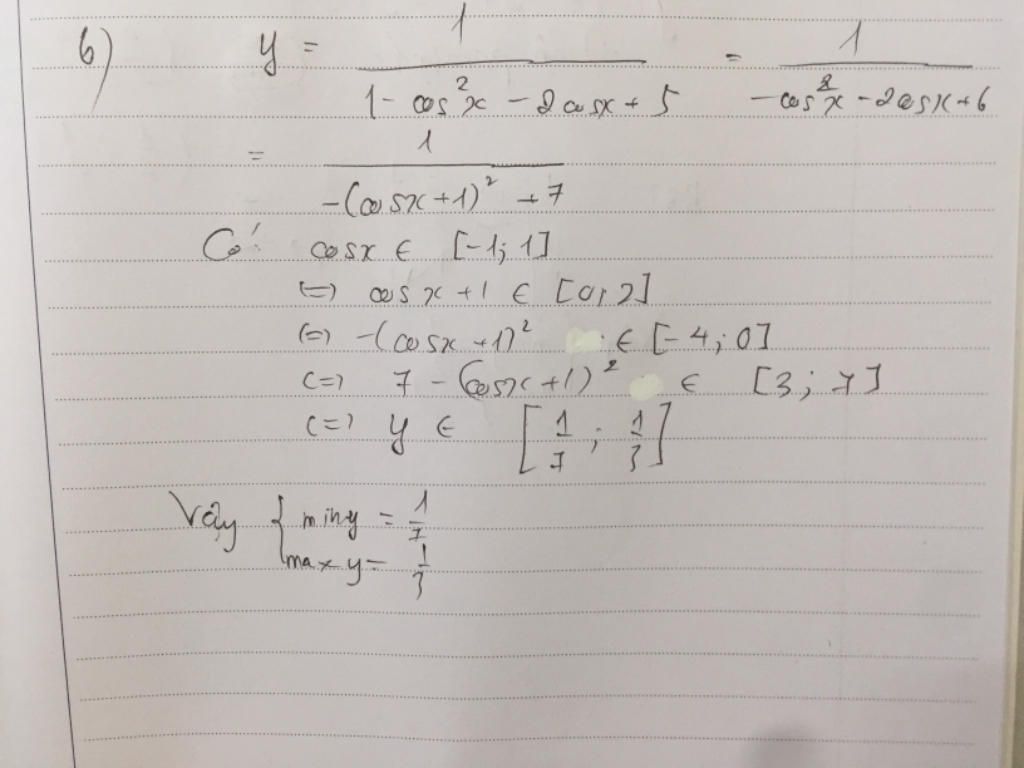 6) y = 1 / (1 - cos²x - 2cosx + 5) = 1 / (-cos²x - 2cosx + 6)
= 1 / (-(cosx+1)² + 7)
Có: cosx ∈ [-1; 1]
(=) cosx + 1 ∈ [0; 2]
(=) -(cosx+1)² ∈ [-4; 0]
(=) 7 - (cosx+1)² ∈ [3; 7]
(=) y ∈ [1/7; 1/3]
Vậy { min y = 1/7
max y = 1/3